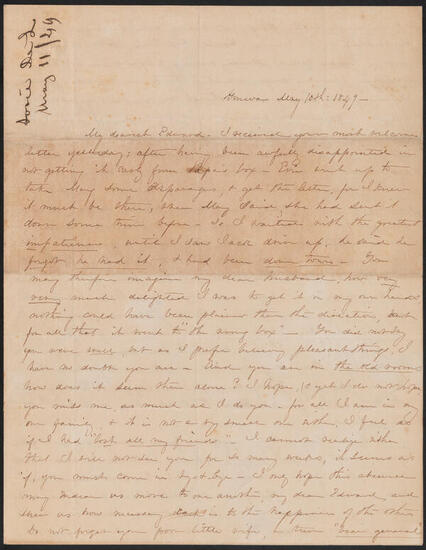 Susie De L
May 11/49
Geneva May 10th: 1849 -
My dearest Edward. I received your most welcome
letter yesterday; after being been awfully disappointed in
not getting it early from Papa's box - Evie went up to
take Mary some Asparagus, & get the letter, for I knew
it must be there, when Mary said, she had sent it
down some time before - So I waited with the greatest
impatience, until I saw Jacob drive up, he said he
forgot he had it, & had been down town - You
may therefore imagine my dear husband, how very
very much delighted I was to get it in my own hands
nothing could have been plainer than the direction, but
for all that it went to "the wrong box" - You did not say
you were well, but as I prefer believing pleasant things, I
have no doubt you are - And you are in the old room
how does it seem there alone? I hope, & yet I do not hope
you miss me, as much as I do you - for all I am in
our family, & it is not a small one either, I feel as
if I had "lost all my friends" - I cannot realize either
that I shall not see you for so many weeks, it seems as
if, you must come in to tea - I only hope this absence
may endear us more to one another, my dear Edward, and
show us how necessary each is to the happiness of the other
Do not forget your poor little wife, in their "general"